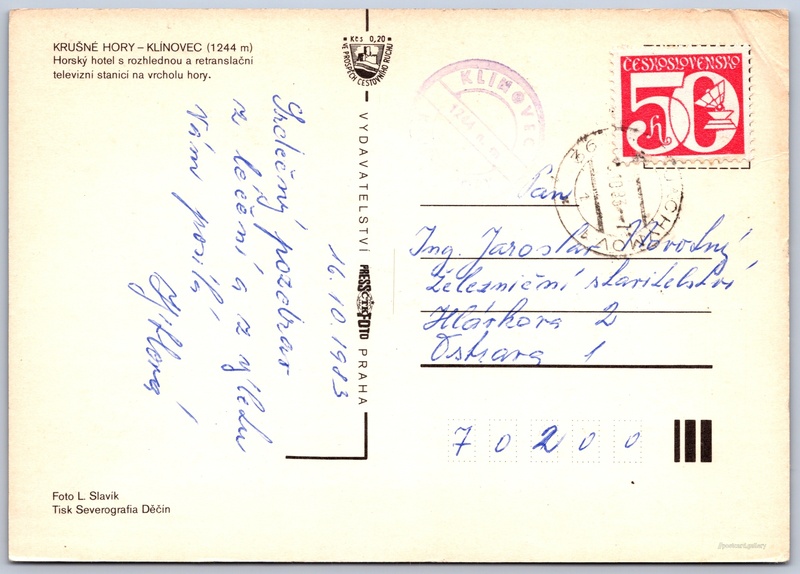 KRUŠNÉ HORY – KLÍNOVEC (1244 m)
Horský hotel s rozhlednou a retranslační
televizní stanicí na vrcholu hory.
Kčs 0,20
VE PROSPĚCH CESTOVNÍHO RUCHU
KLÍNOVEC
ČESKOSLOVENSKO
50 h
JÁCHYMOV 1
Srdečný pozdrav
z léčení a z výletu
Vám posílá
16.10.1983
VYDAVATELSTVÍ PRESSFOTO PRAHA
ČTK
Pan
Ing. Jaroslav Novotný
Železniční stavitelství
Hlávkova 2
Ostrava 1
70200
Foto L. Slavík
Tisk Severografia Děčín